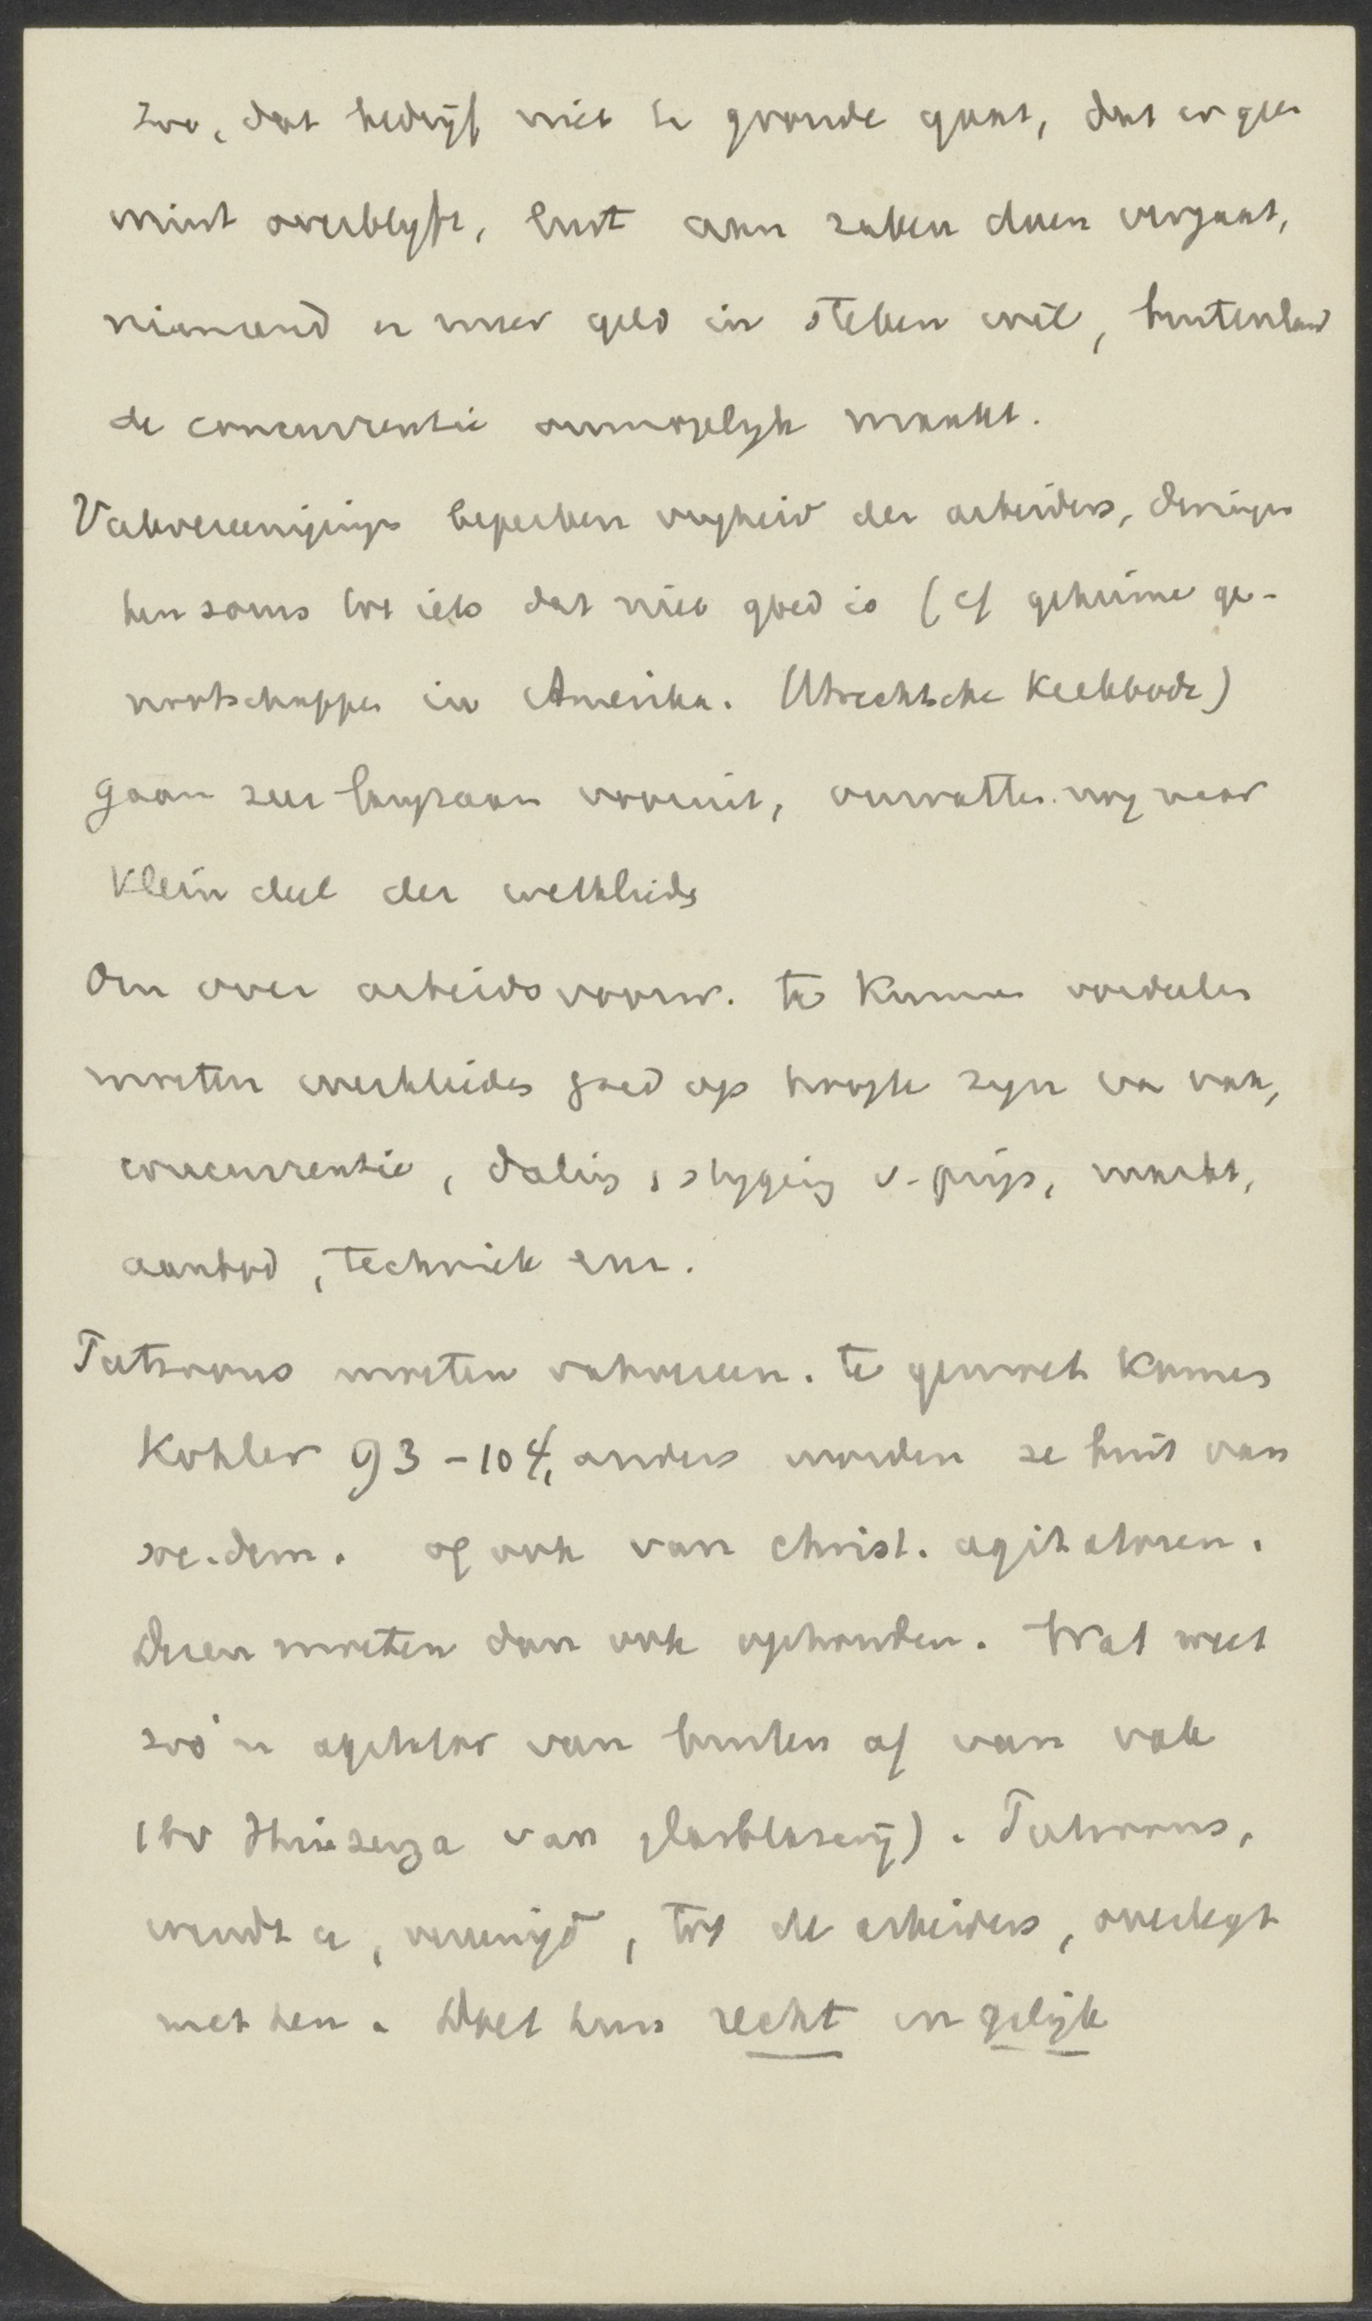 zoo, dat bedrijf niet te gronde gaat, dat er geen
winst overblijft, lust aan zaken doen vergaat,
niemand er meer geld in steken wil, buitenland
de concurrentie onmogelijk maakt.
Vakvereenigings beperken vrijheid der arbeiders, dwingen
hen soms tot iets dat niet goed is (cf geheime ge-
nootschappen in Amerika. Utrechtsche Kerkbode)
gaan zeer langzaam vooruit, omvatten nog maar
klein deel der werklieden
Om over arbeidsvoorw. te kunnen oordeelen
moeten werklieden goed op hoogte zijn van vak,
concurrentie, daling, stijging v. prijs, markt,
aanbod, techniek enz.
Patroons moeten vakvereen. te gemoet komen
Kohler 93-104, anders worden ze buit van
soc. dem. of ook van christ. agitatoren.
Dezen moeten dan ook ophouden. Wat weet
zoo'n agitator van buiten af van vak
(bv van glasblazerij). Patroons,
wendt u, vereenigd, tot de arbeiders, overlegt
met hen. Doet hun recht en gelijk